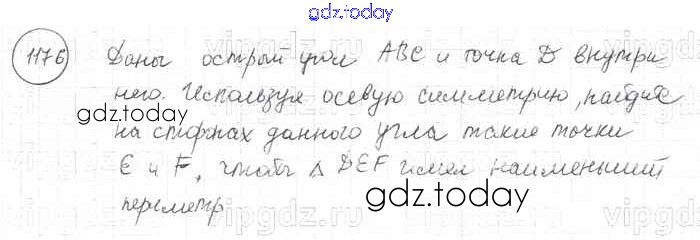 gdz.today
1176 Даны острый угол ABC и точка D внутри
него. Используя осевую симметрию, найдите
gdz.today
на сторонах данного угла такие точки
E и F, чтобы Δ DEF имел наименьший
gdz.today
периметр